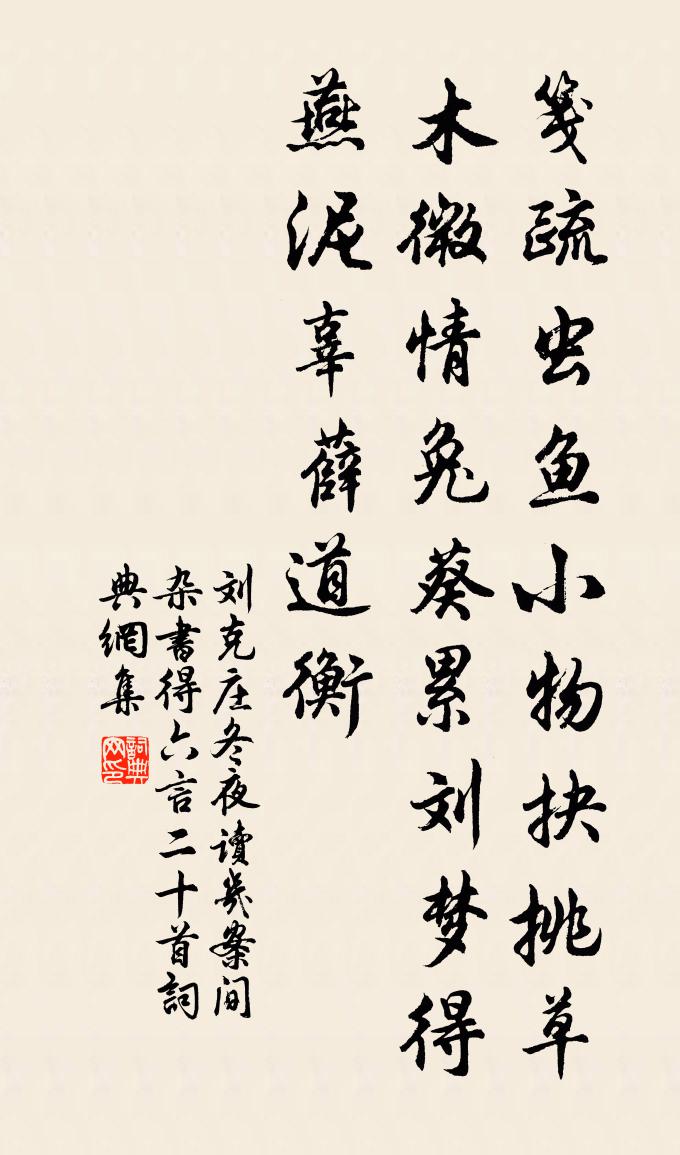 笺疏虫鱼小物抉挑草
木微情兔葵累刘梦得
燕泥辜薛道衡
刘克庄冬夜读几案间
杂书得六言二十首詞
典網集
詞典网印